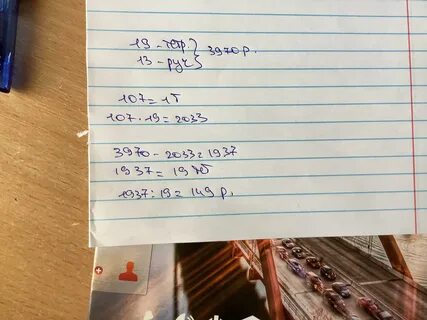 19 - тетр. } 3970 р.
13 - руч
107 = 1т
107 · 19 = 2033
3970 - 2033 = 1937
1937 =
1937 : 19 = 149 р.